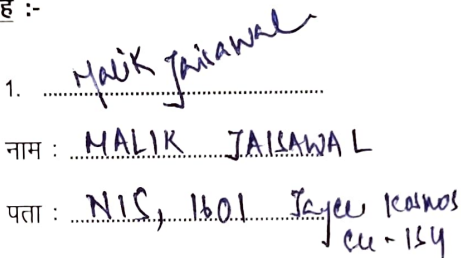 ह :-
1. Malik Jaisawal
नाम : MALIK JAISAWAL
पता : NIS, 1601 Jayee Kosmos